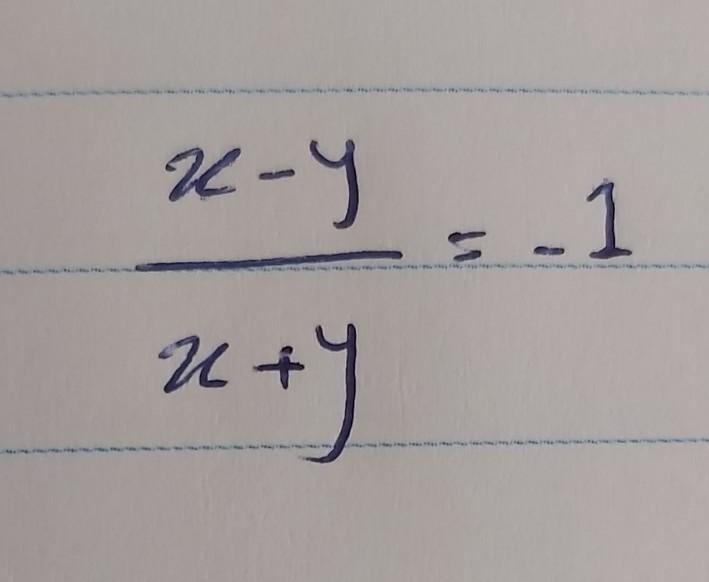 x - y
x + y = -1